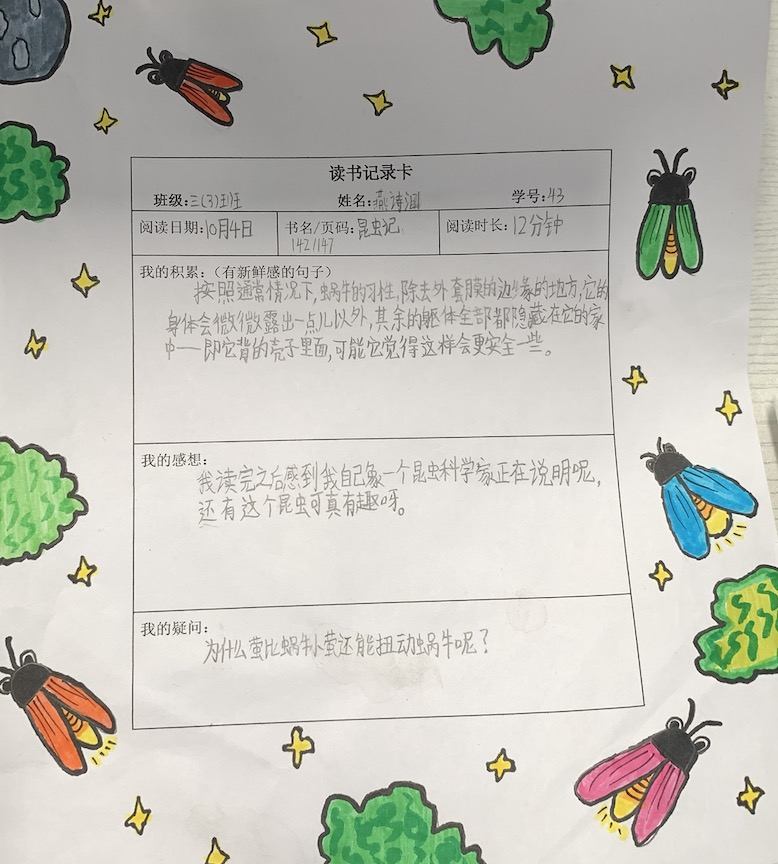 读书记录卡
班级:三(3)班 姓名:燕诗涵 学号:43
阅读日期:10月4日 书名/页码:昆虫记 阅读时长:12分钟
142/147
我的积累:(有新鲜感的句子)
按照通常情况下,蜗牛的习性,除去外套膜的边缘的地方,它的
身体会微微露出一点儿以外,其余的躯体全部都隐藏在它的家
中——即它背的壳子里面,可能它觉得这样会更安全一些。
我的感想:
我读完之后感到我自己象一个昆虫科学家正在说明呢,
还有这个昆虫可真有趣呀。
我的疑问:
为什么萤比蜗牛小萤还能扭动蜗牛呢?